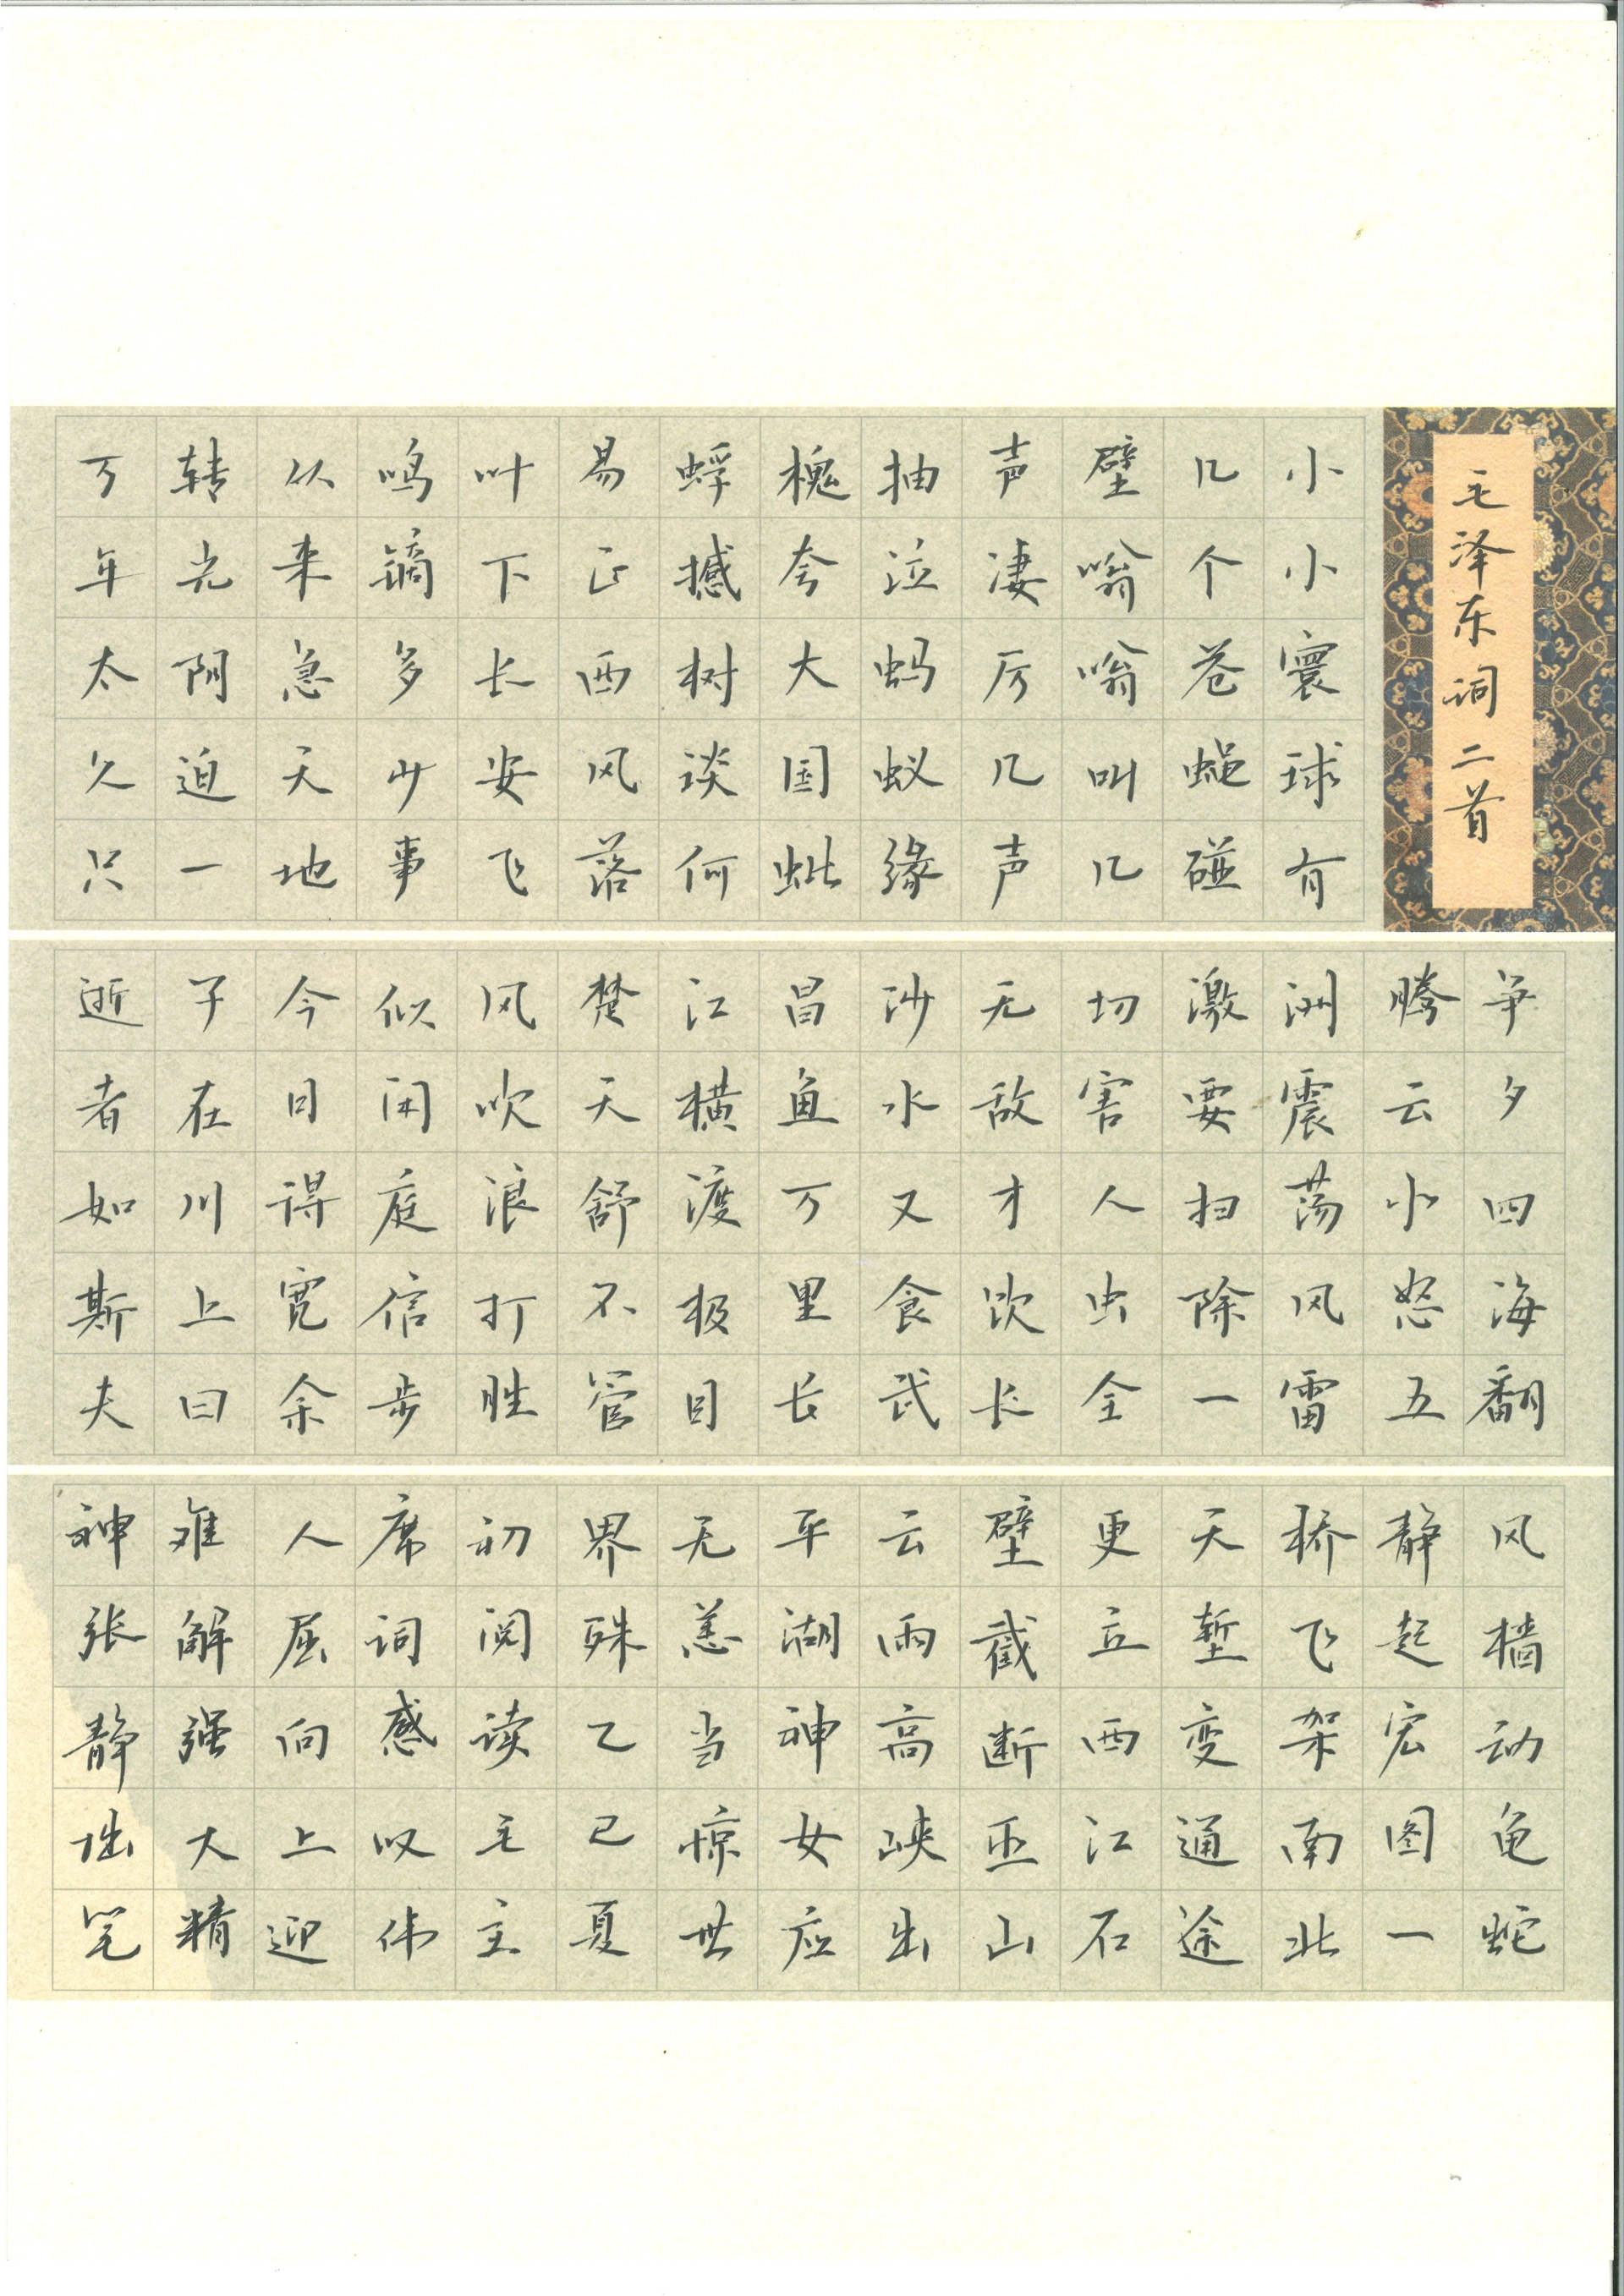 毛泽东词二首
小小寰球有
几个苍蝇碰
壁嗡嗡叫几
声凄厉几声
抽泣蚂蚁缘
槐夸大国蚍
蜉撼树谈何
易正西风落
叶下长安飞
鸣镝多少事
从来急天地
转光阴迫一
万年太久只
争夕四海翻
腾云水怒五
洲震荡风雷
激要扫除一
切害人虫全
无敌才饮长
沙水又食武
昌鱼万里长
江横渡极目
楚天舒不管
风吹浪打胜
似闲庭信步
今日得宽余
子在川上曰
逝者如斯夫
风樯动龟蛇
静起宏图一
桥飞架南北
天堑变通途
更立西江石
壁截断巫山
云雨高峡出
平湖神女应
无恙当惊世
界殊乙已夏
初阅读毛主
席词感叹伟
人屈向上迎
难解强大精
神张静拙笔